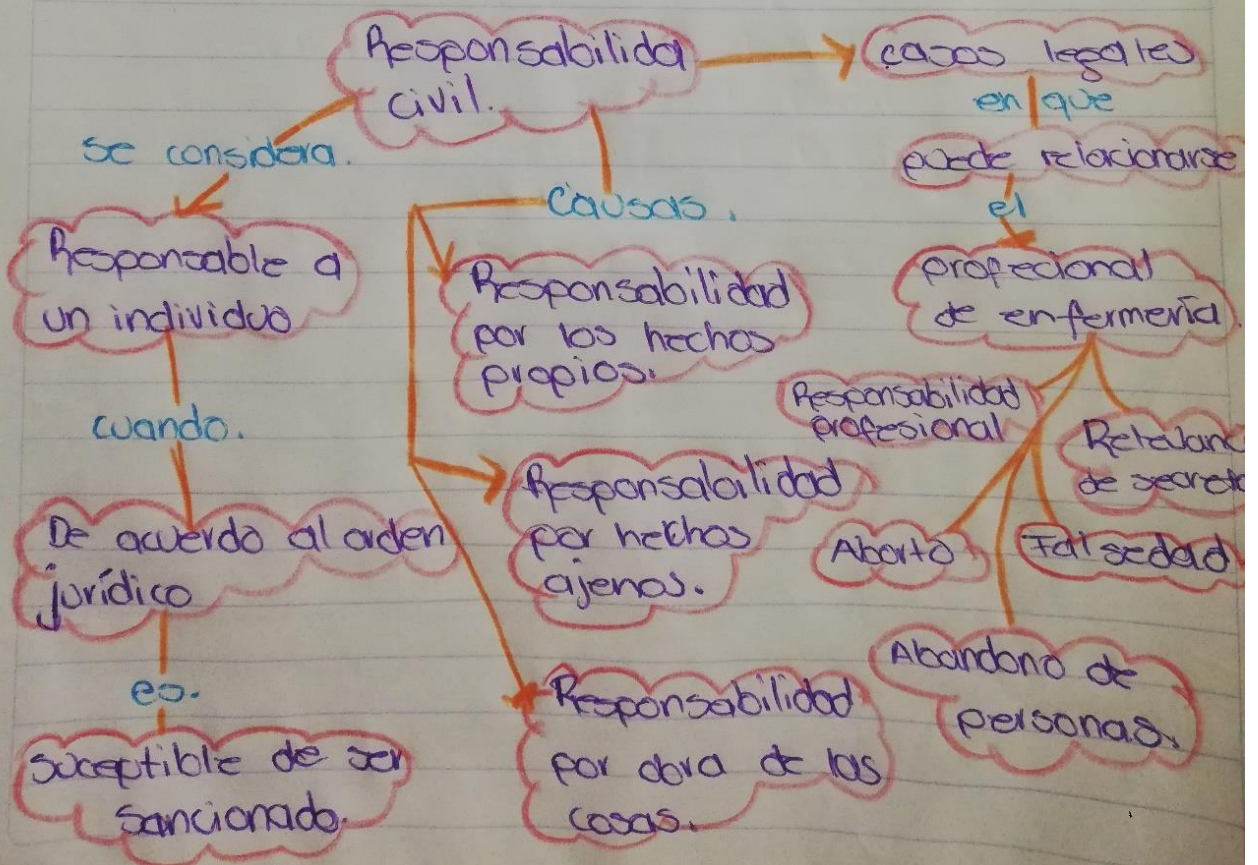 Responsabilida
civil.
se considera.
Responsable a
un individuo
cuando.
De acuerdo al orden
jurídico
es.
suceptible de ser
sancionado.
causas.
Responsabilidad
por los hechos
propios.
Responsabilidad
por hechos
ajenos.
Responsabilidad
por obra de las
cosas.
casos legales
en que
puede relacionarse
el
profecional
de enfermería.
Responsabilidad
profesional
de secreto
Aborto.
Falsedad
Abandono de
personas.